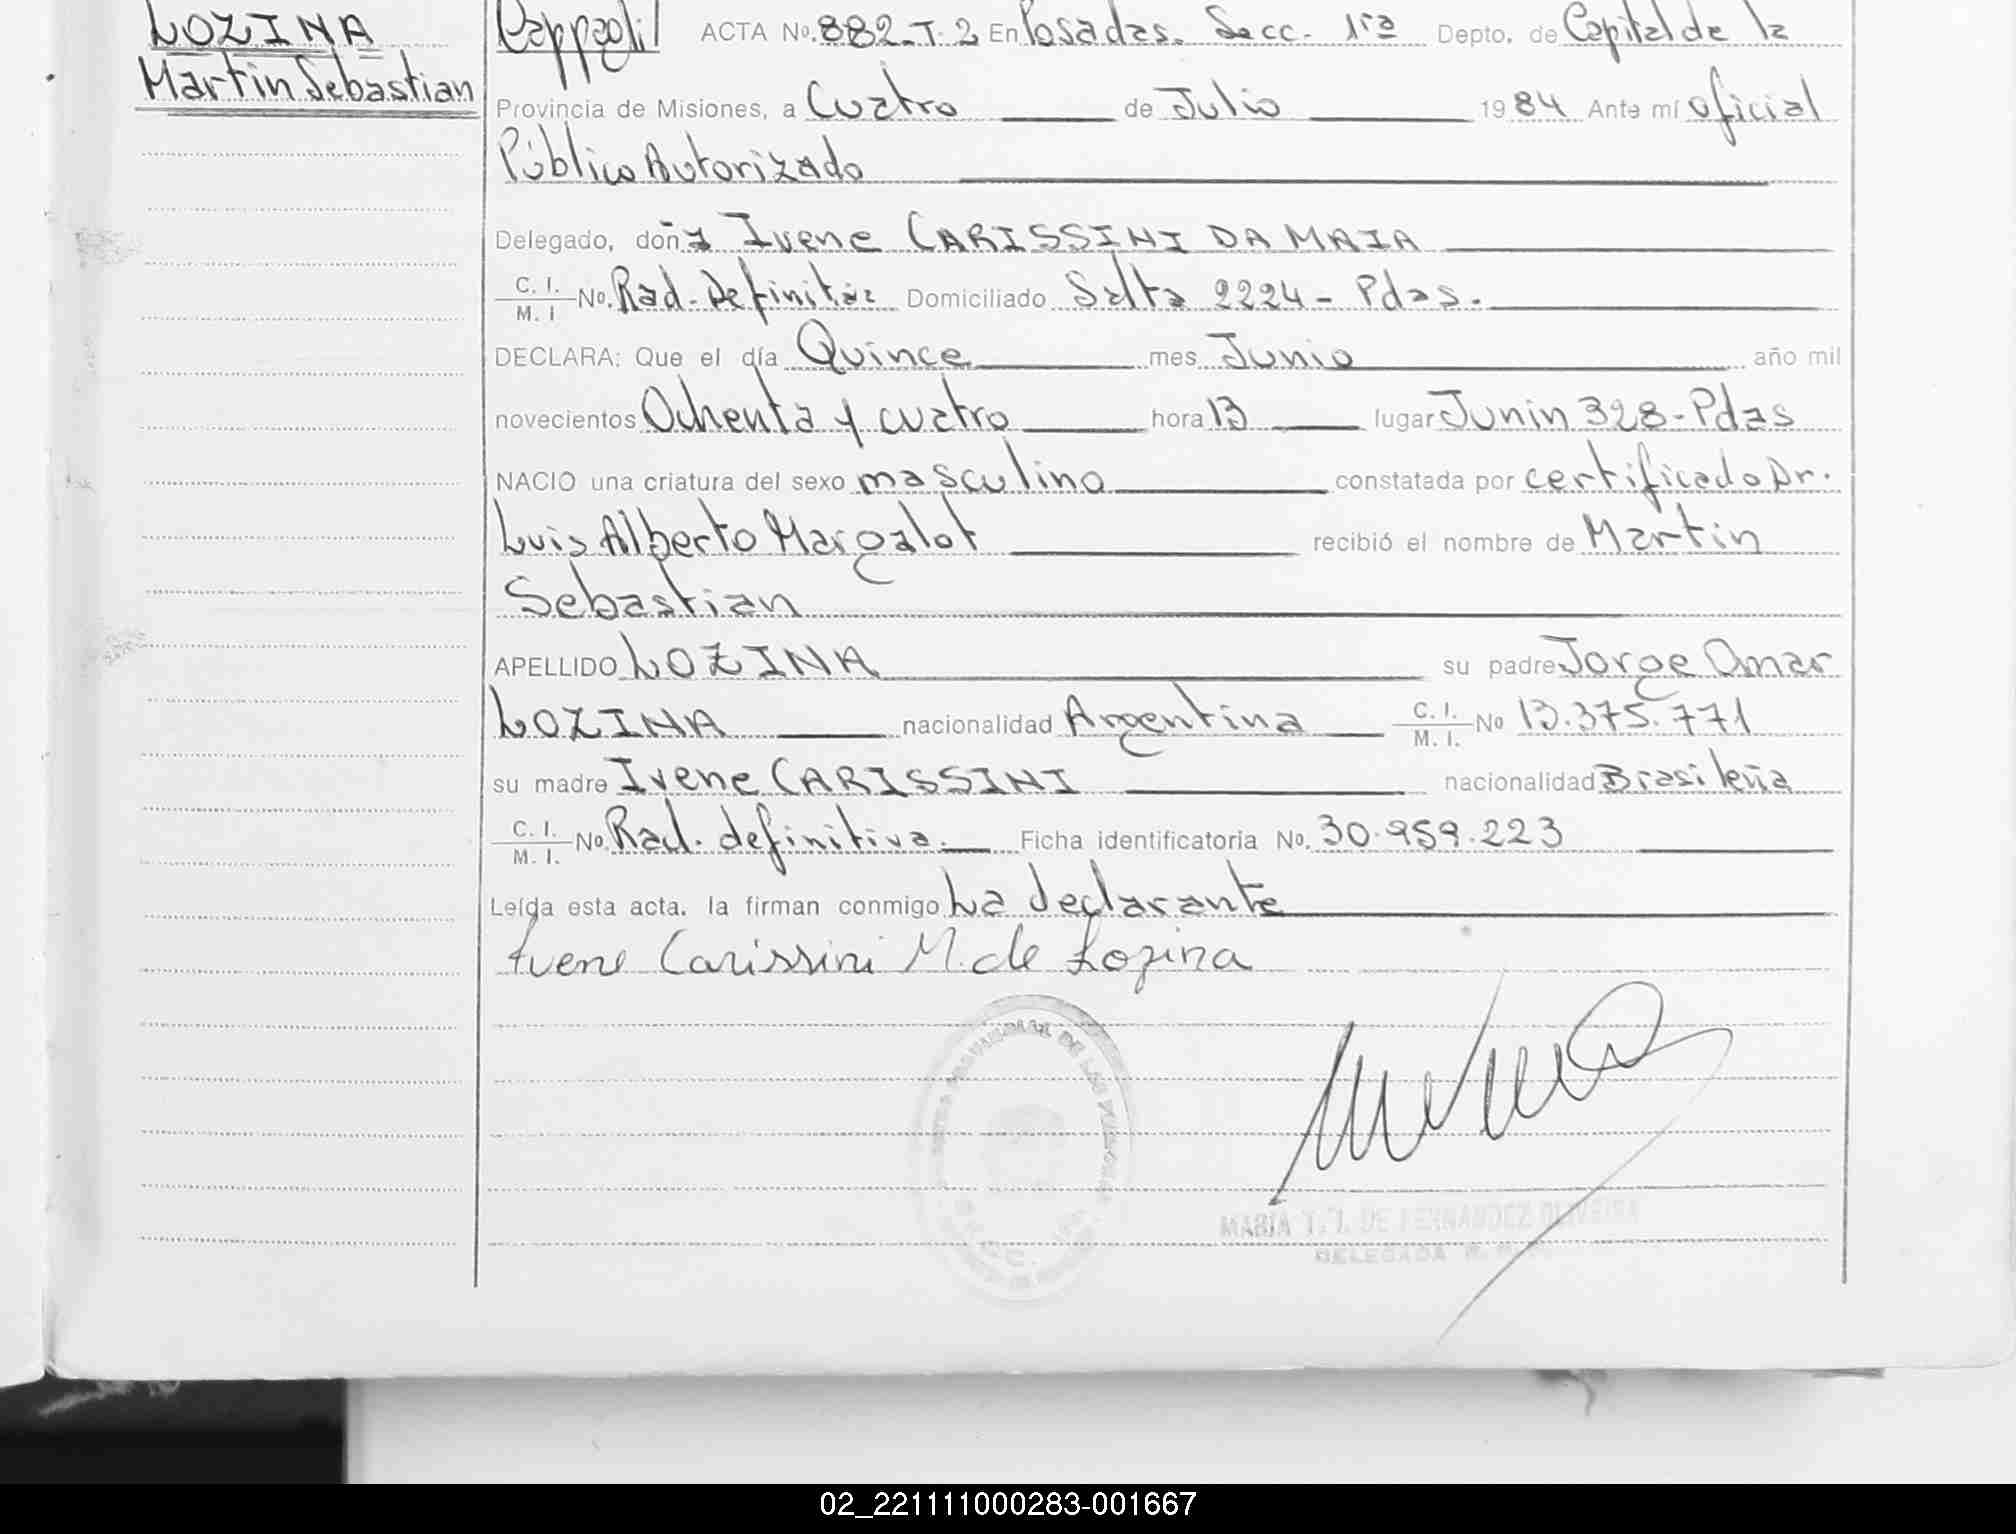 LOZINA
Martin Sebastian
ACTA No. 882-T-2 En Posadas. Secc. 1ra Depto. de Capital de la
Provincia de Misiones, a Cuatro de Julio 1984 Ante mí oficial
Público Autorizado
Delegado, doña Ivene CARISSINI DA MAIA
C. I. / M. I No. Rad. Definitiva Domiciliado Salta 2224 - Pdas.
DECLARA: Que el día Quince mes Junio año mil
novecientos Ochenta y cuatro hora 13 lugar Junin 328 - Pdas
NACIO una criatura del sexo masculino constatada por certificado Dr.
Luis Alberto Margalot recibió el nombre de Martin
Sebastian
APELLIDO LOZINA su padre Jorge Omar
LOZINA nacionalidad Argentina C. I. / M. I. No 13.375.771
su madre Ivene CARISSINI nacionalidad Brasileña
C. I. / M. I. No. Rad. definitiva. Ficha identificatoria No. 30.959.223
Leída esta acta. la firman conmigo La declarante
Ivene Carissini M. de Lozina
MARIA T. J. DE FERNANDEZ OLIVEIRA
DELEGADA
02_221111000283-001667